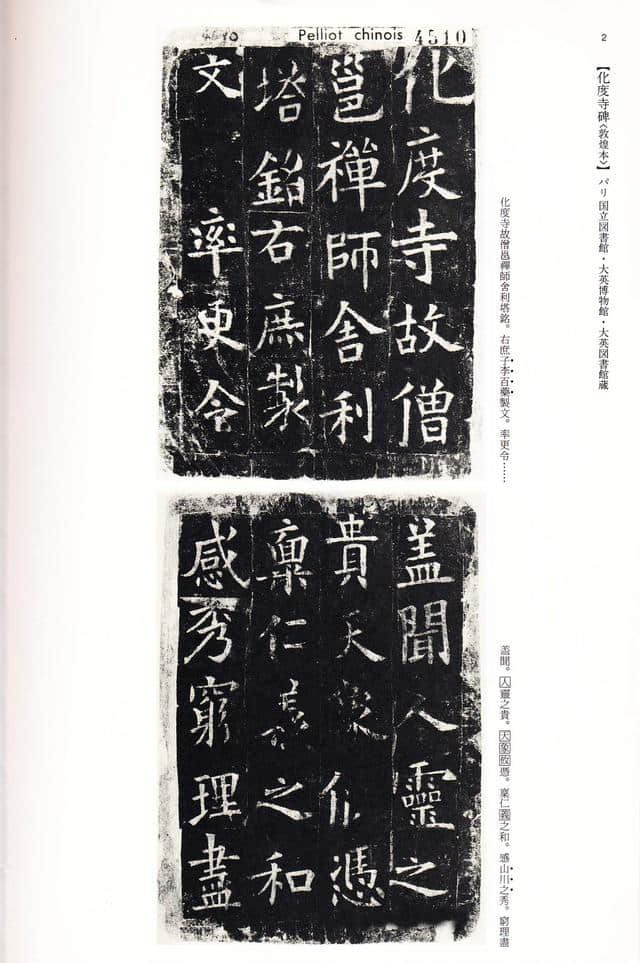 2
【化度寺碑〈敦煌本〉】 パリ国立図書館・大英博物館・大英図書館蔵
化度寺故僧邕禪師舍利塔銘。右庶子李百藥製文。率更令……
盖聞。人靈之貴。天象攸憑。稟仁義之和。感山川之秀。窮理盡
Pelliot chinois 4510
4510
化度寺故僧
邕禪師舍利
塔銘右庶製
文 率更令
盖聞人靈之
貴天象攸憑
稟仁義之和
感秀窮理盡